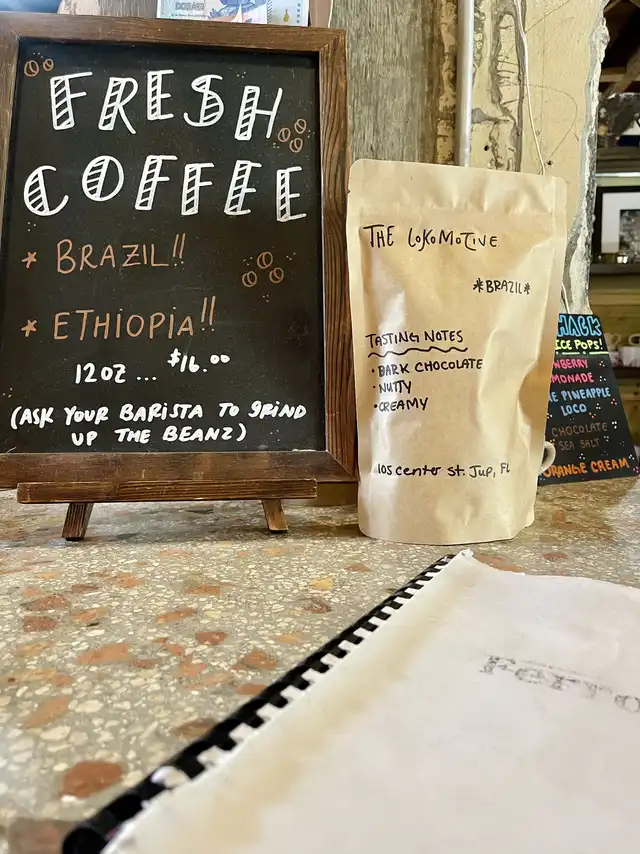 FRESH
COFFEE
* BRAZIL!!
* ETHIOPIA!!
12OZ... $16.00
(ASK YOUR BARISTA TO GRIND
UP THE BEANZ)
THE LOKOMOTIVE
*BRAZIL*
TASTING NOTES
• DARK CHOCOLATE
• NUTTY
• CREAMY
105 center st. Jup, FL
ICE POPS!
PINEAPPLE
LOCO
CHOCOLATE
SEA SALT
ORANGE CREAM